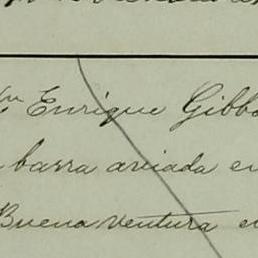 Enrique Gibbo
barra aviada en
Buenaventura e